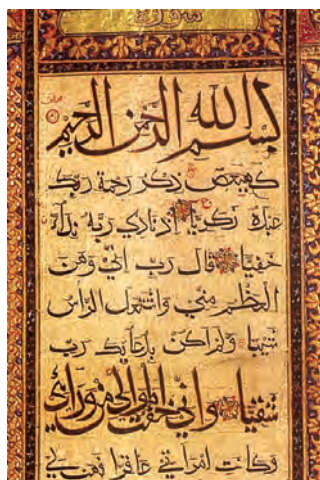 سورة
بسم الله الرحمن الرحيم
كهيعص ذكر رحمة ربك
عبده زكريا إذ نادى ربه نداء
خفيا قال رب إني وهن
العظم مني واشتعل الرأس
شيبا ولم أكن بدعائك رب
شقيا وإني خفت الموالي من ورائي
وكانت امرأتي عاقرا فهب لي